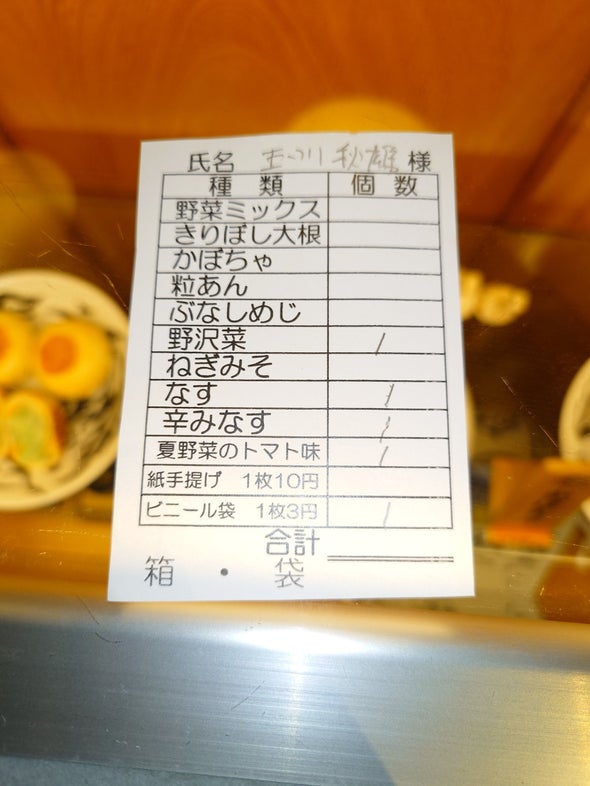 氏名 玉つ川 秋雄 様
種類 個数
野菜ミックス
きりぼし大根
かぼちゃ
粒あん
ぶなしめじ
野沢菜 1
ねぎみそ
なす 1
辛みなす 1
夏野菜のトマト味 1
紙手提げ 1枚10円
ビニール袋 1枚3円 1
合計
箱 ・ 袋